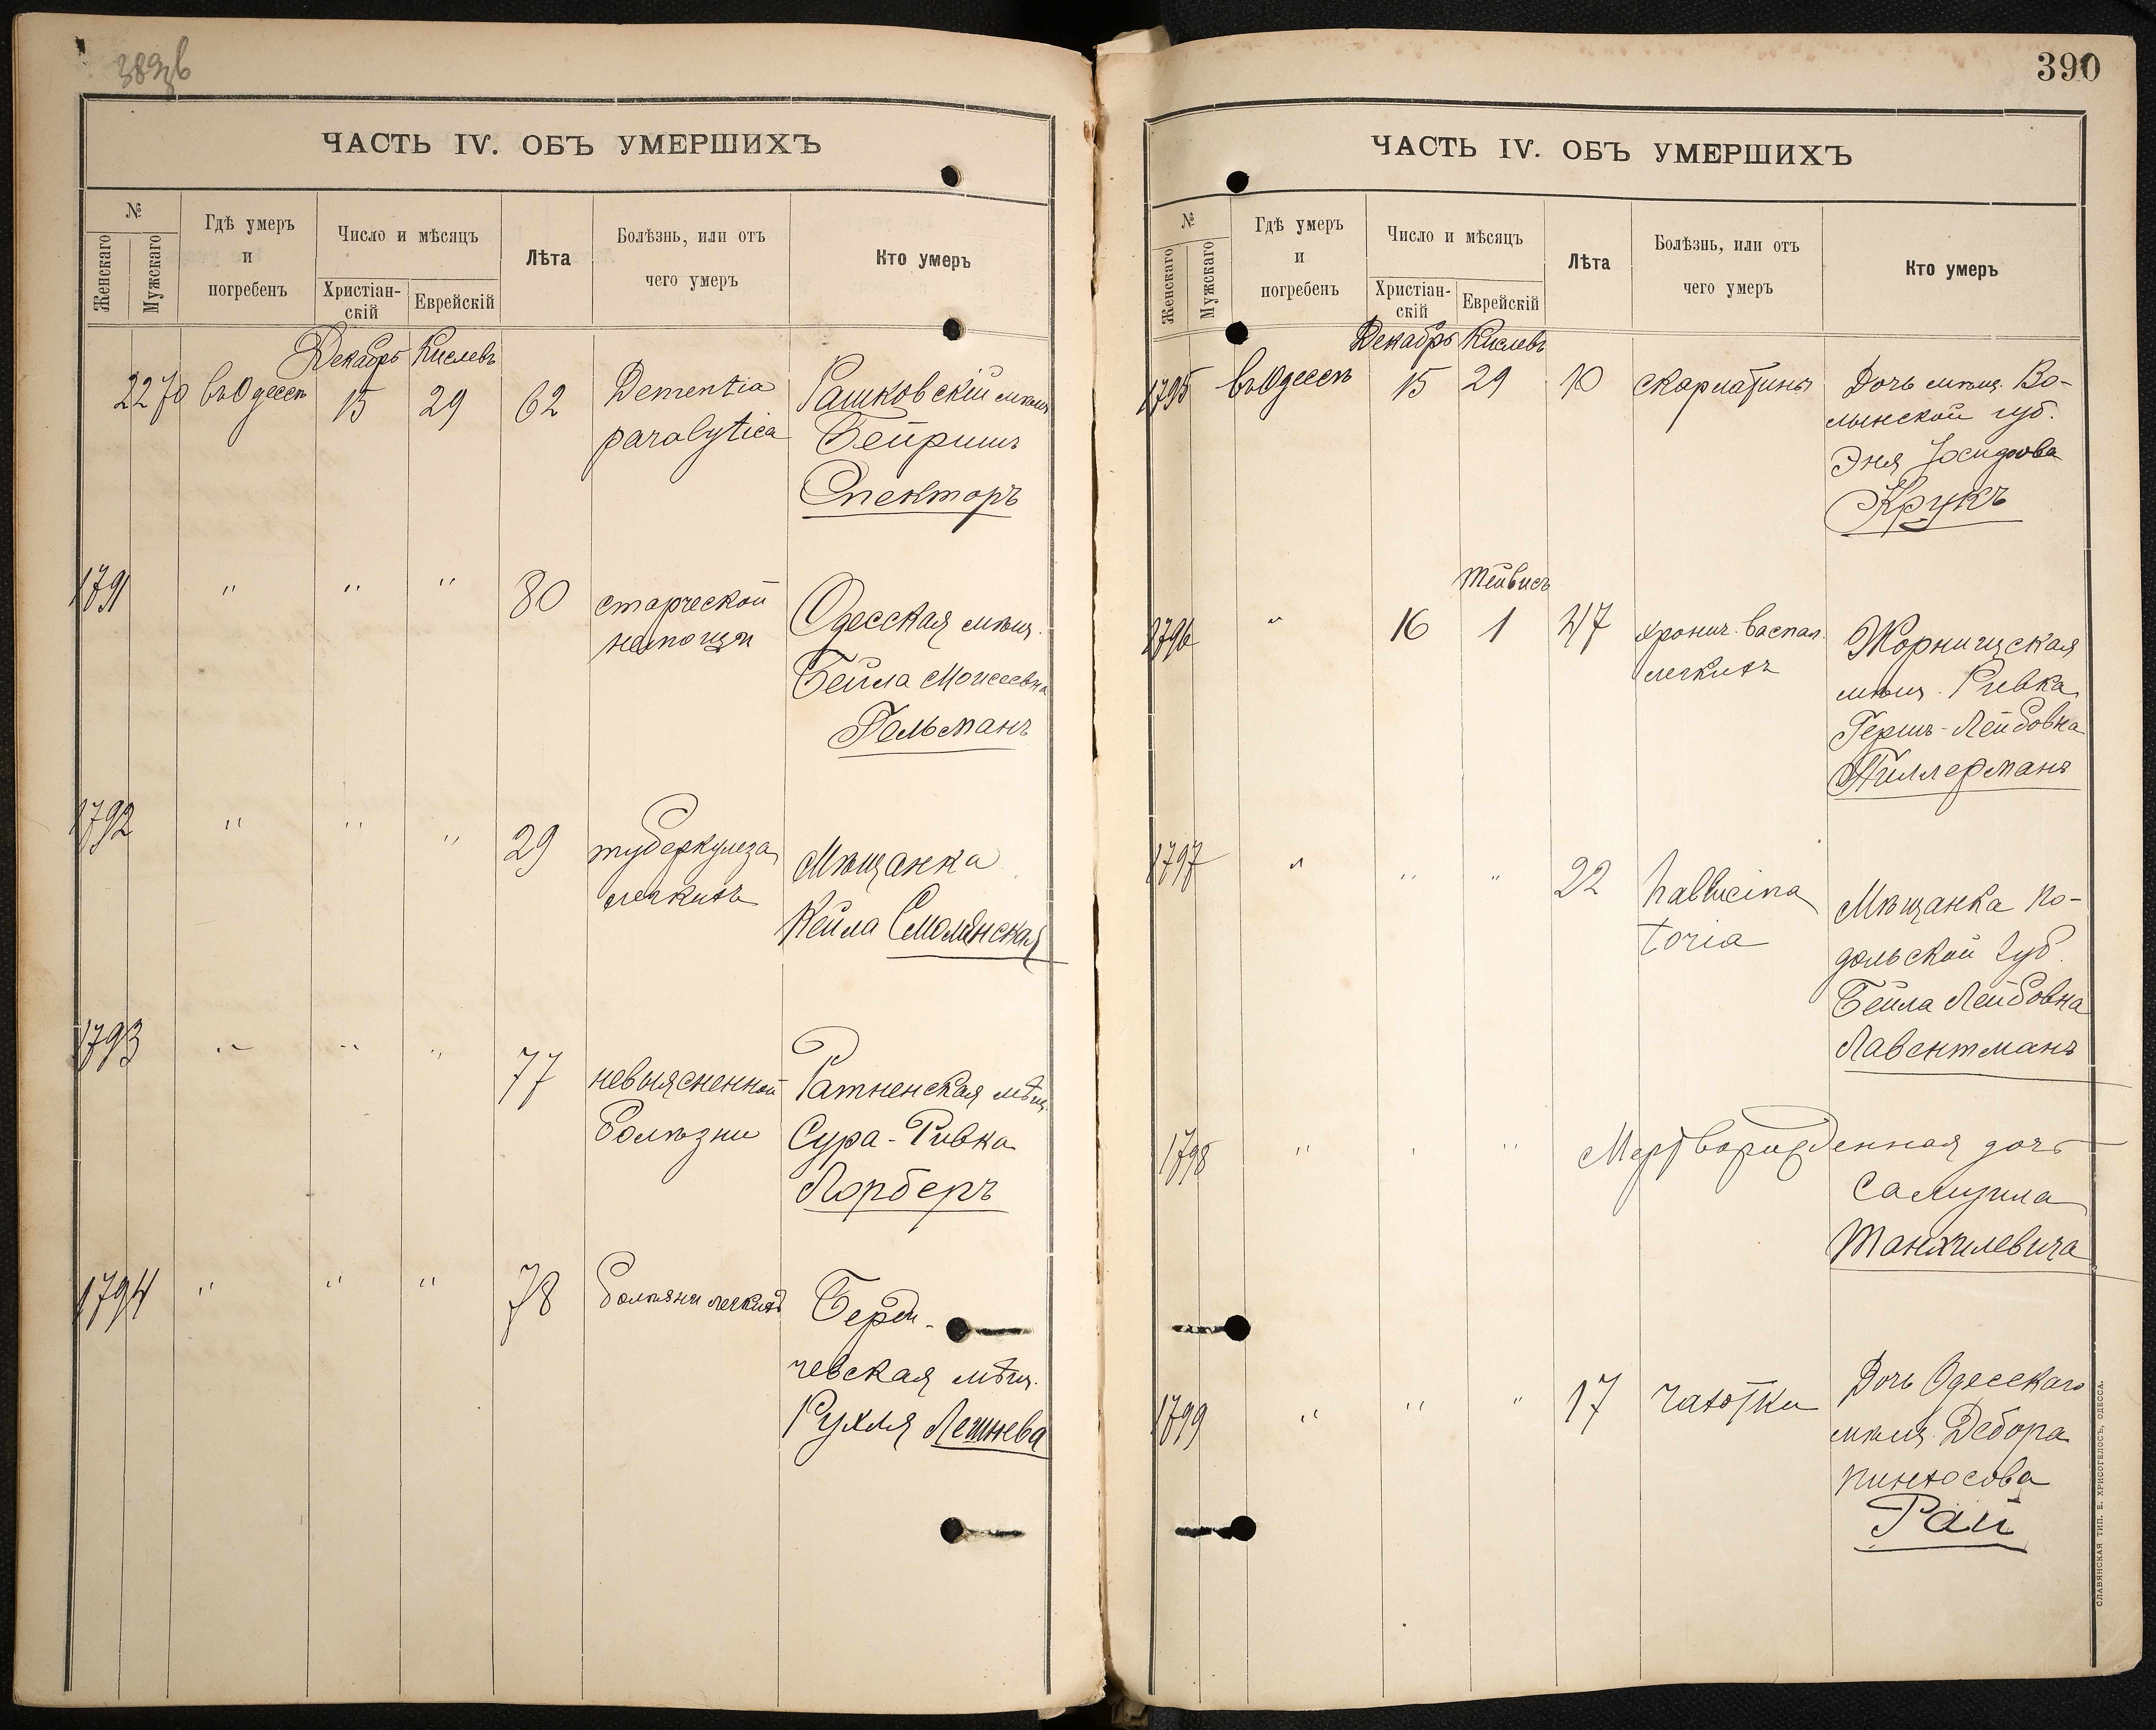 389 в
ЧАСТЬ IV. ОБЪ УМЕРШИХЪ
№
Женскаго
Мужскаго
Гдѣ умеръ
и
погребенъ
Число и мѣсяцъ
Христіан-
скій
Еврейскій
Лѣта
Болѣзнь, или отъ
чего умеръ
Кто умеръ
Декабрь Кислевъ
2270 въ Одессѣ 15 29 62 Dementia Рашковскій мѣщ.
paralytica Бейришъ
Спекторъ
1791 " " " 80 старческой Одесская мѣщ.
немощи Бейла Моисеевна
Гельманъ
1792 " " " 29 туберкулеза Мѣщанка
легкихъ Кейла Смолянская
1793 " " " 77 невыясненной Ратненская мѣщ.
болѣзни Сура-Ривка
Лорберъ
1794 " " " 78 болѣзни легкихъ Берди-
чевская мѣщ.
Рухля Лешнева
390
ЧАСТЬ IV. ОБЪ УМЕРШИХЪ
№
Женскаго
Мужскаго
Гдѣ умеръ
и
погребенъ
Число и мѣсяцъ
Христіан-
скій
Еврейскій
Лѣта
Болѣзнь, или отъ
чего умеръ
Кто умеръ
Декабрь Кислевъ
1795 въ Одессѣ 15 29 10 скарлатины Дочь мѣщ. Во-
лынской губ.
Эня
Крукъ
Тейвисъ
1796 " 16 1 47 хронич. васпал. Жорнищская
легкихъ мѣщ. Ривка
Гершъ-Лейбовна
Пиллерманъ
1797 " " " 22 hallucina Мѣщанка По-
toria дольской губ.
Бейла Лейбовна
Лавентманъ
1798 " " " Мертворожденная дочь
Самуила
Танхилевича
1799 " " " 17 чахотки Дочь Одесскаго
мѣщ. Дебора
Пинхосова
Рай
СЛАВЯНСКАЯ ТИП. Е. ХРИСОГЕЛОСЪ, ОДЕССА.